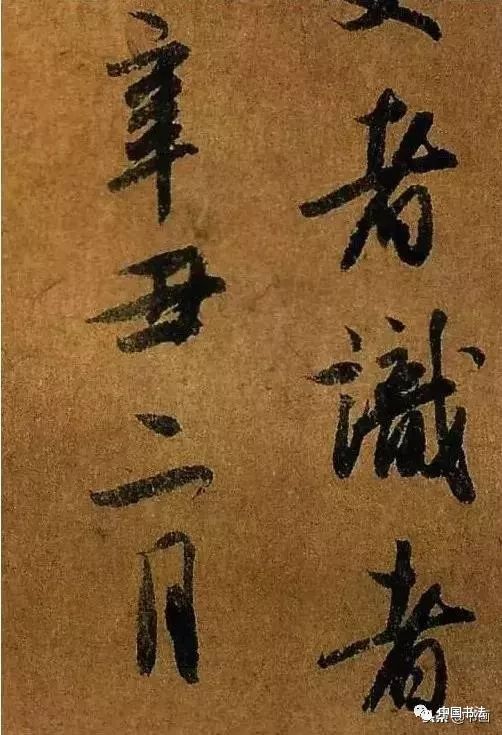 者識者
辛丑二月
中国书法